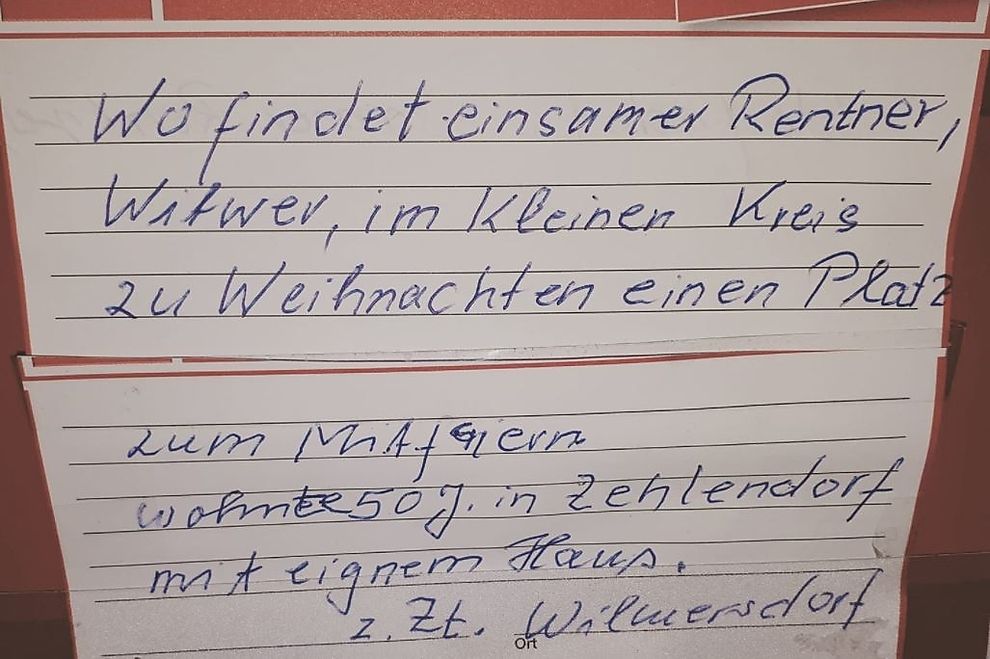 Wo findet einsamer Rentner,
Witwer, im kleinen Kreis
zu Weihnachten einen Platz
zum Mitfeiern
wohnte 50 J. in Zehlendorf
mit eignem Haus.
z. Zt. Wilmersdorf
Ort